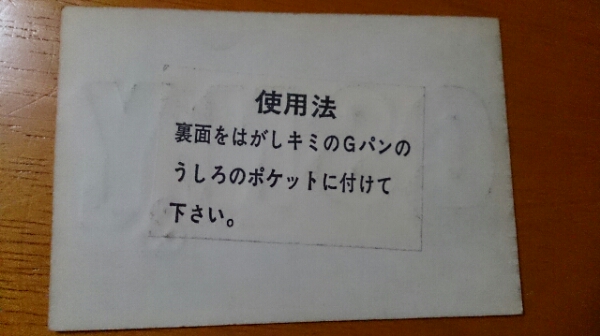 使用法
裏面をはがしキミのGパンの
うしろのポケットに付けて
下さい。